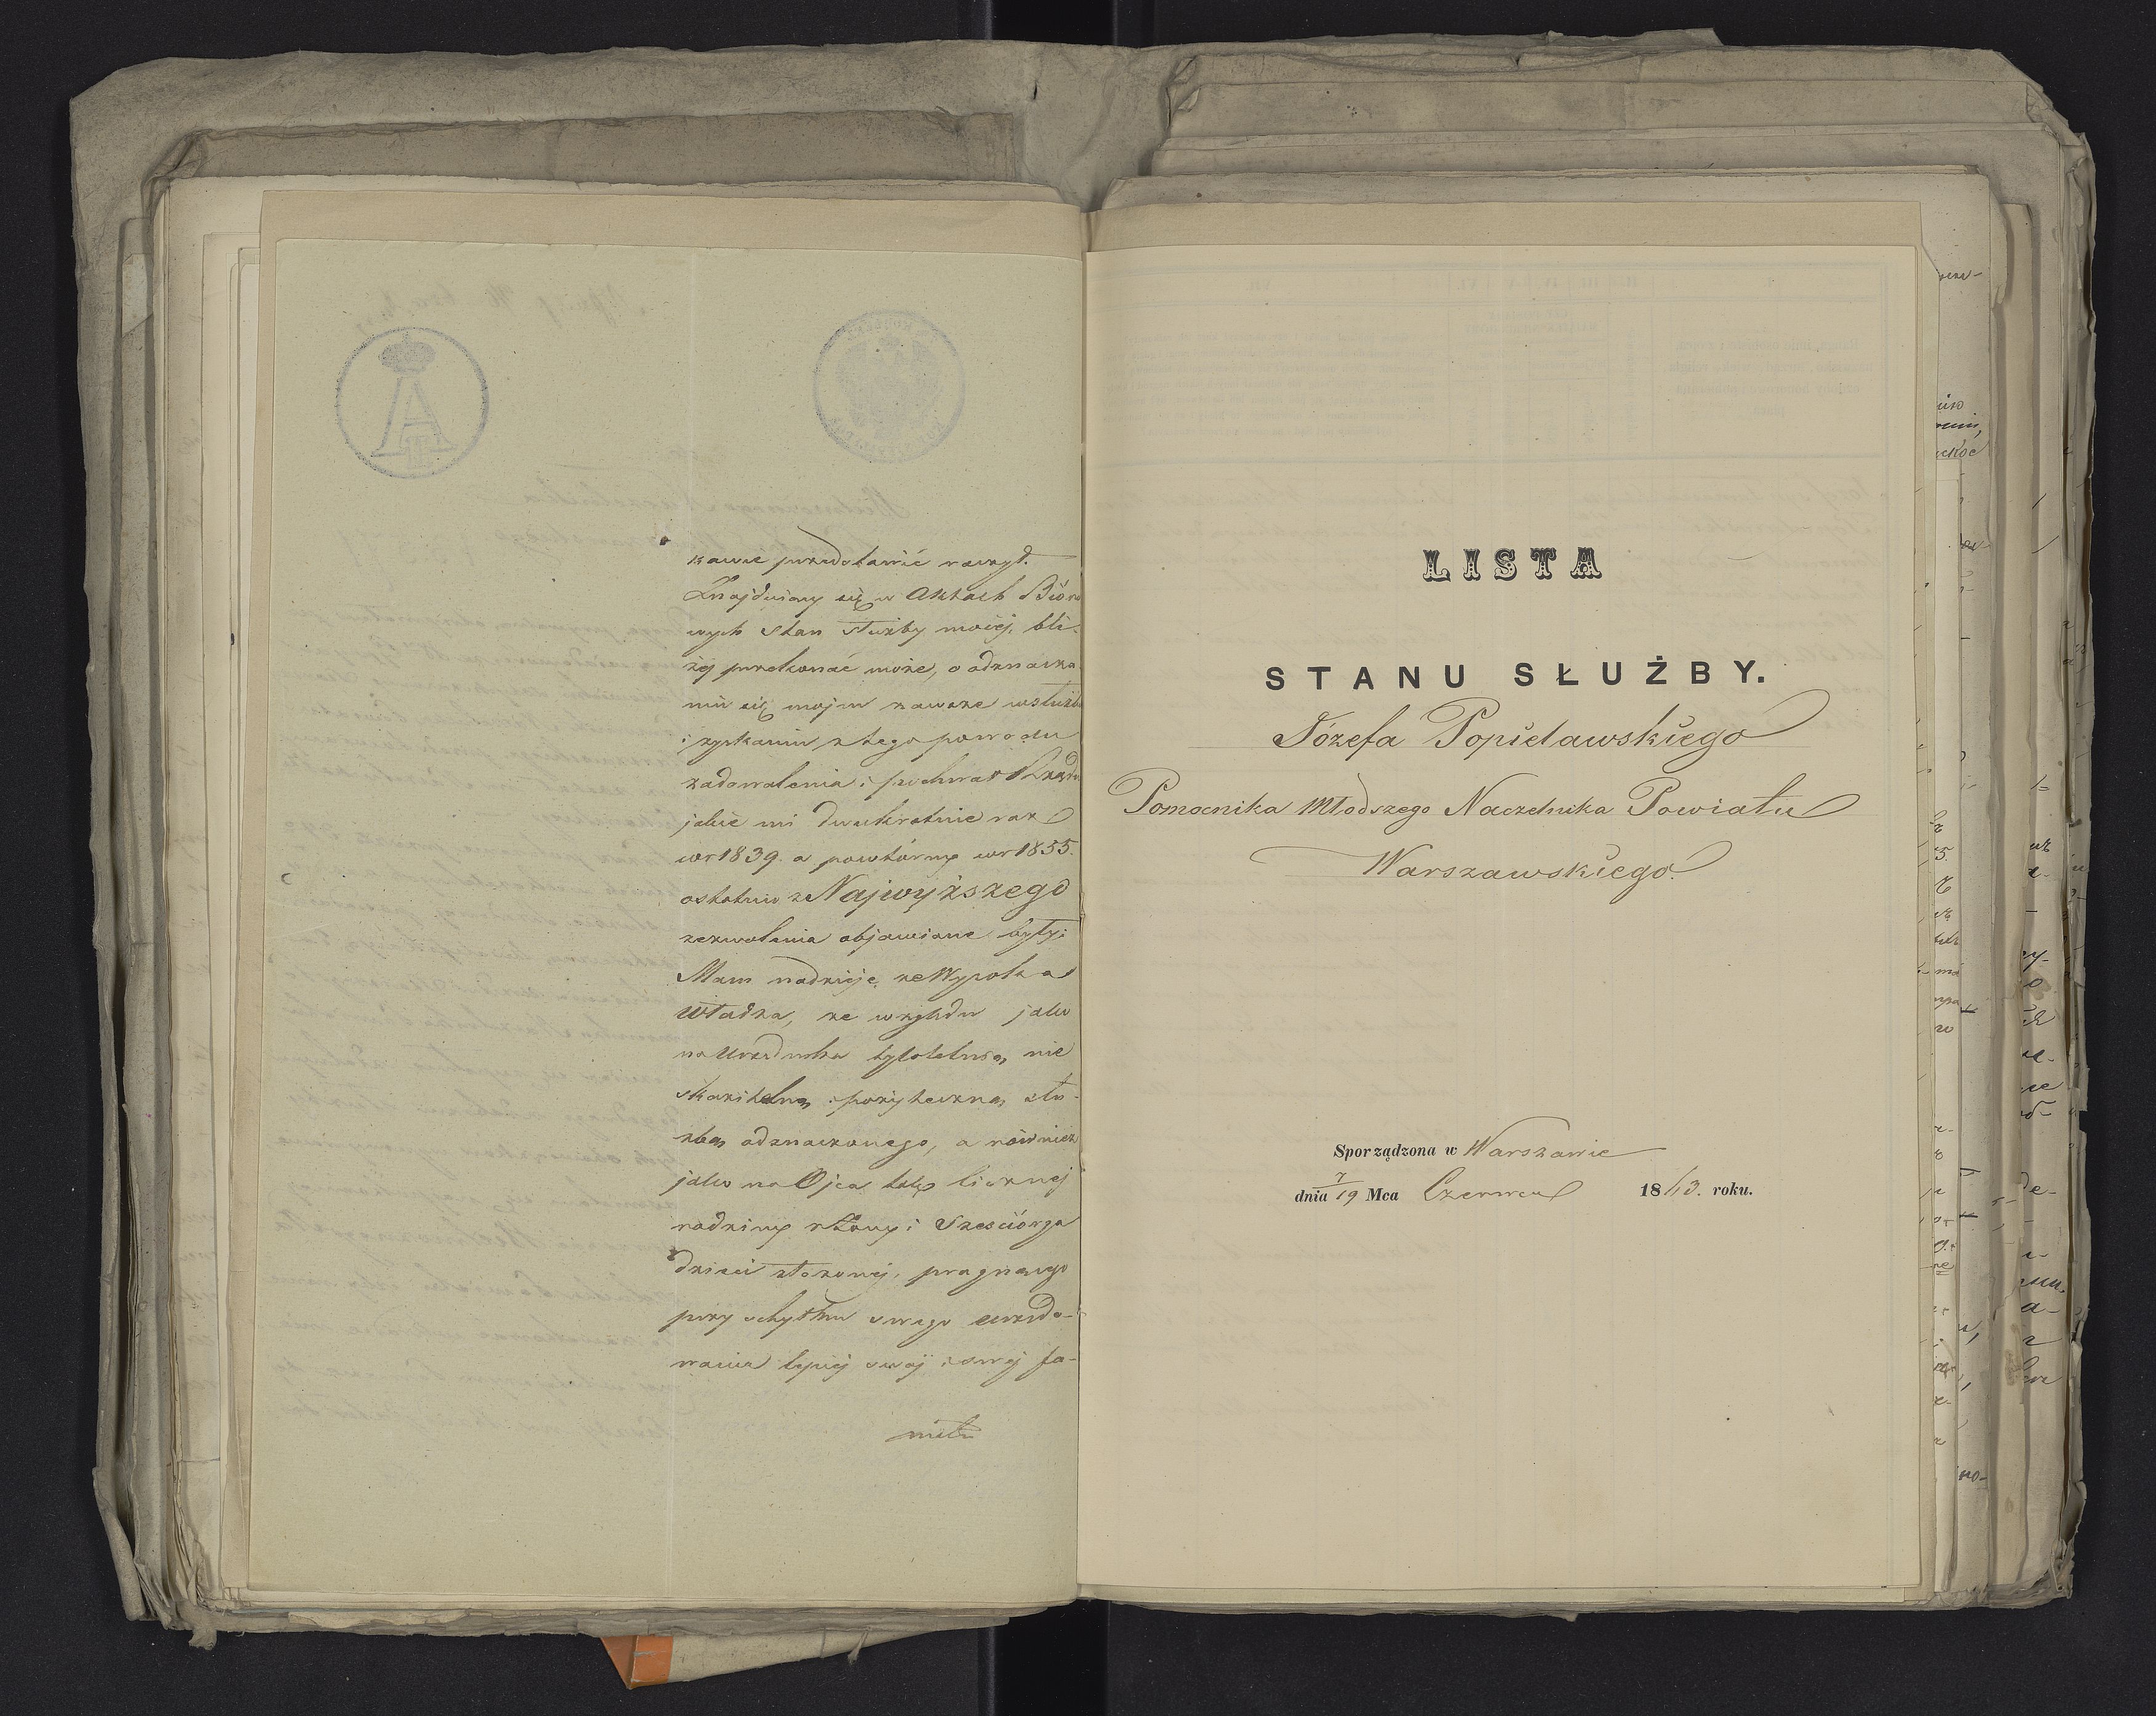 kawe przedstawić raczył.
Znajdujący się w Aktach Bióro
wych Stan służby mojéj, bli-
żéj przekonać może, o odznacza
niu się mojem zawsze w służbie
i zyskaniu z tego powodu
zadowolenia i pochwał Rządu
jakie mi dwukrotnie raz
w r 1839. a powtórny w r 1855.
ostatnio z Najwyższego
zezwolenia objawione były;
Mam nadzieję, że Wysoka
Władza, ze względu jako
na Urzędnika tyloletnią, nie
skazitelną i pożyteczną słu-
żbą odznaczonego, a również
jako na Ojca tak licznéj
rodziny z Żony i Sześciórga
dzieci złożonéj, pragnącego
przy schyłku swego urzędo-
wania lepiéj swój i swéj fa-
milii
LISTA
STANU SŁUŻBY.
Józefa Popielawskiego
Pomocnika Młodszego Naczelnika Powiatu
Warszawskiego.
Sporządzona w Warszawie
dnia 7/19 Mca Czerwca 1863. roku.